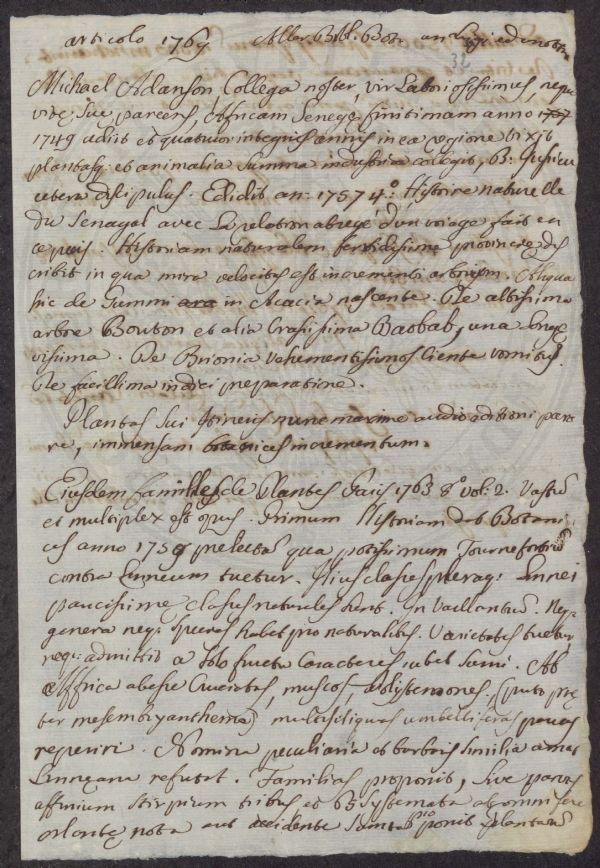 articolo 1769 Aller Bibl. Bot.
32
Michael Adanson Collega noster, vir Laboriosissimus, neque
vitę suę parcens, Africam Senegę finitimam anno
1749 adiit et quatuor integris annis in ea regione vixit
plantasq; et animalia summa industria collegit, B. Jussieu
discipulus. Edidit an: 1757 4.o Histoire naturelle
du Senagal avec la relation abregé d'un voiage fait en
ce païs. Historiam naturalem fervidissimę provincię des
cribit in qua mira velocitas est incrementi arborum. Aliqua
hic de Gummi in Acacia nascente. De altissima
arbore Bouton et alia Crassissima Baobab, una
De Brionia vehementissimos ciente vomitus.
De facillima indici preparatione.
Plantas sui Itineris nunc maxime audio editioni para
re, immensam botanices incrementum.
Eiusdem familles de Plantes Paris 1763 8.o vol: 2. Vastum
et multiplex est opus. Primum Historiam dat Botani
ces anno 1759 prelectam qua potissimum Tournefortium
contra Linneum tuetur. Hius classes pleraq; Linnei
paucissime classes naturales sunt. In Vaillantum. Neq;
genera neq; species habet pro naturalibus. Varietates tuetur
neq; admittit a solo fructu caracteres iubet sumi. Ab
Affrica abesse Cruciatas, muscos (puto prę
ter mesembryanthema) multisiliquas umbelliferas paucas
reperiri. Nomina peculiaria et barbaris similia amat
Linnęana refutat. Familias proponit, sive parvas
affinium stirpium tribus et 65 systemata ab omni fere
nota aut accidente sumta proponit plantarum